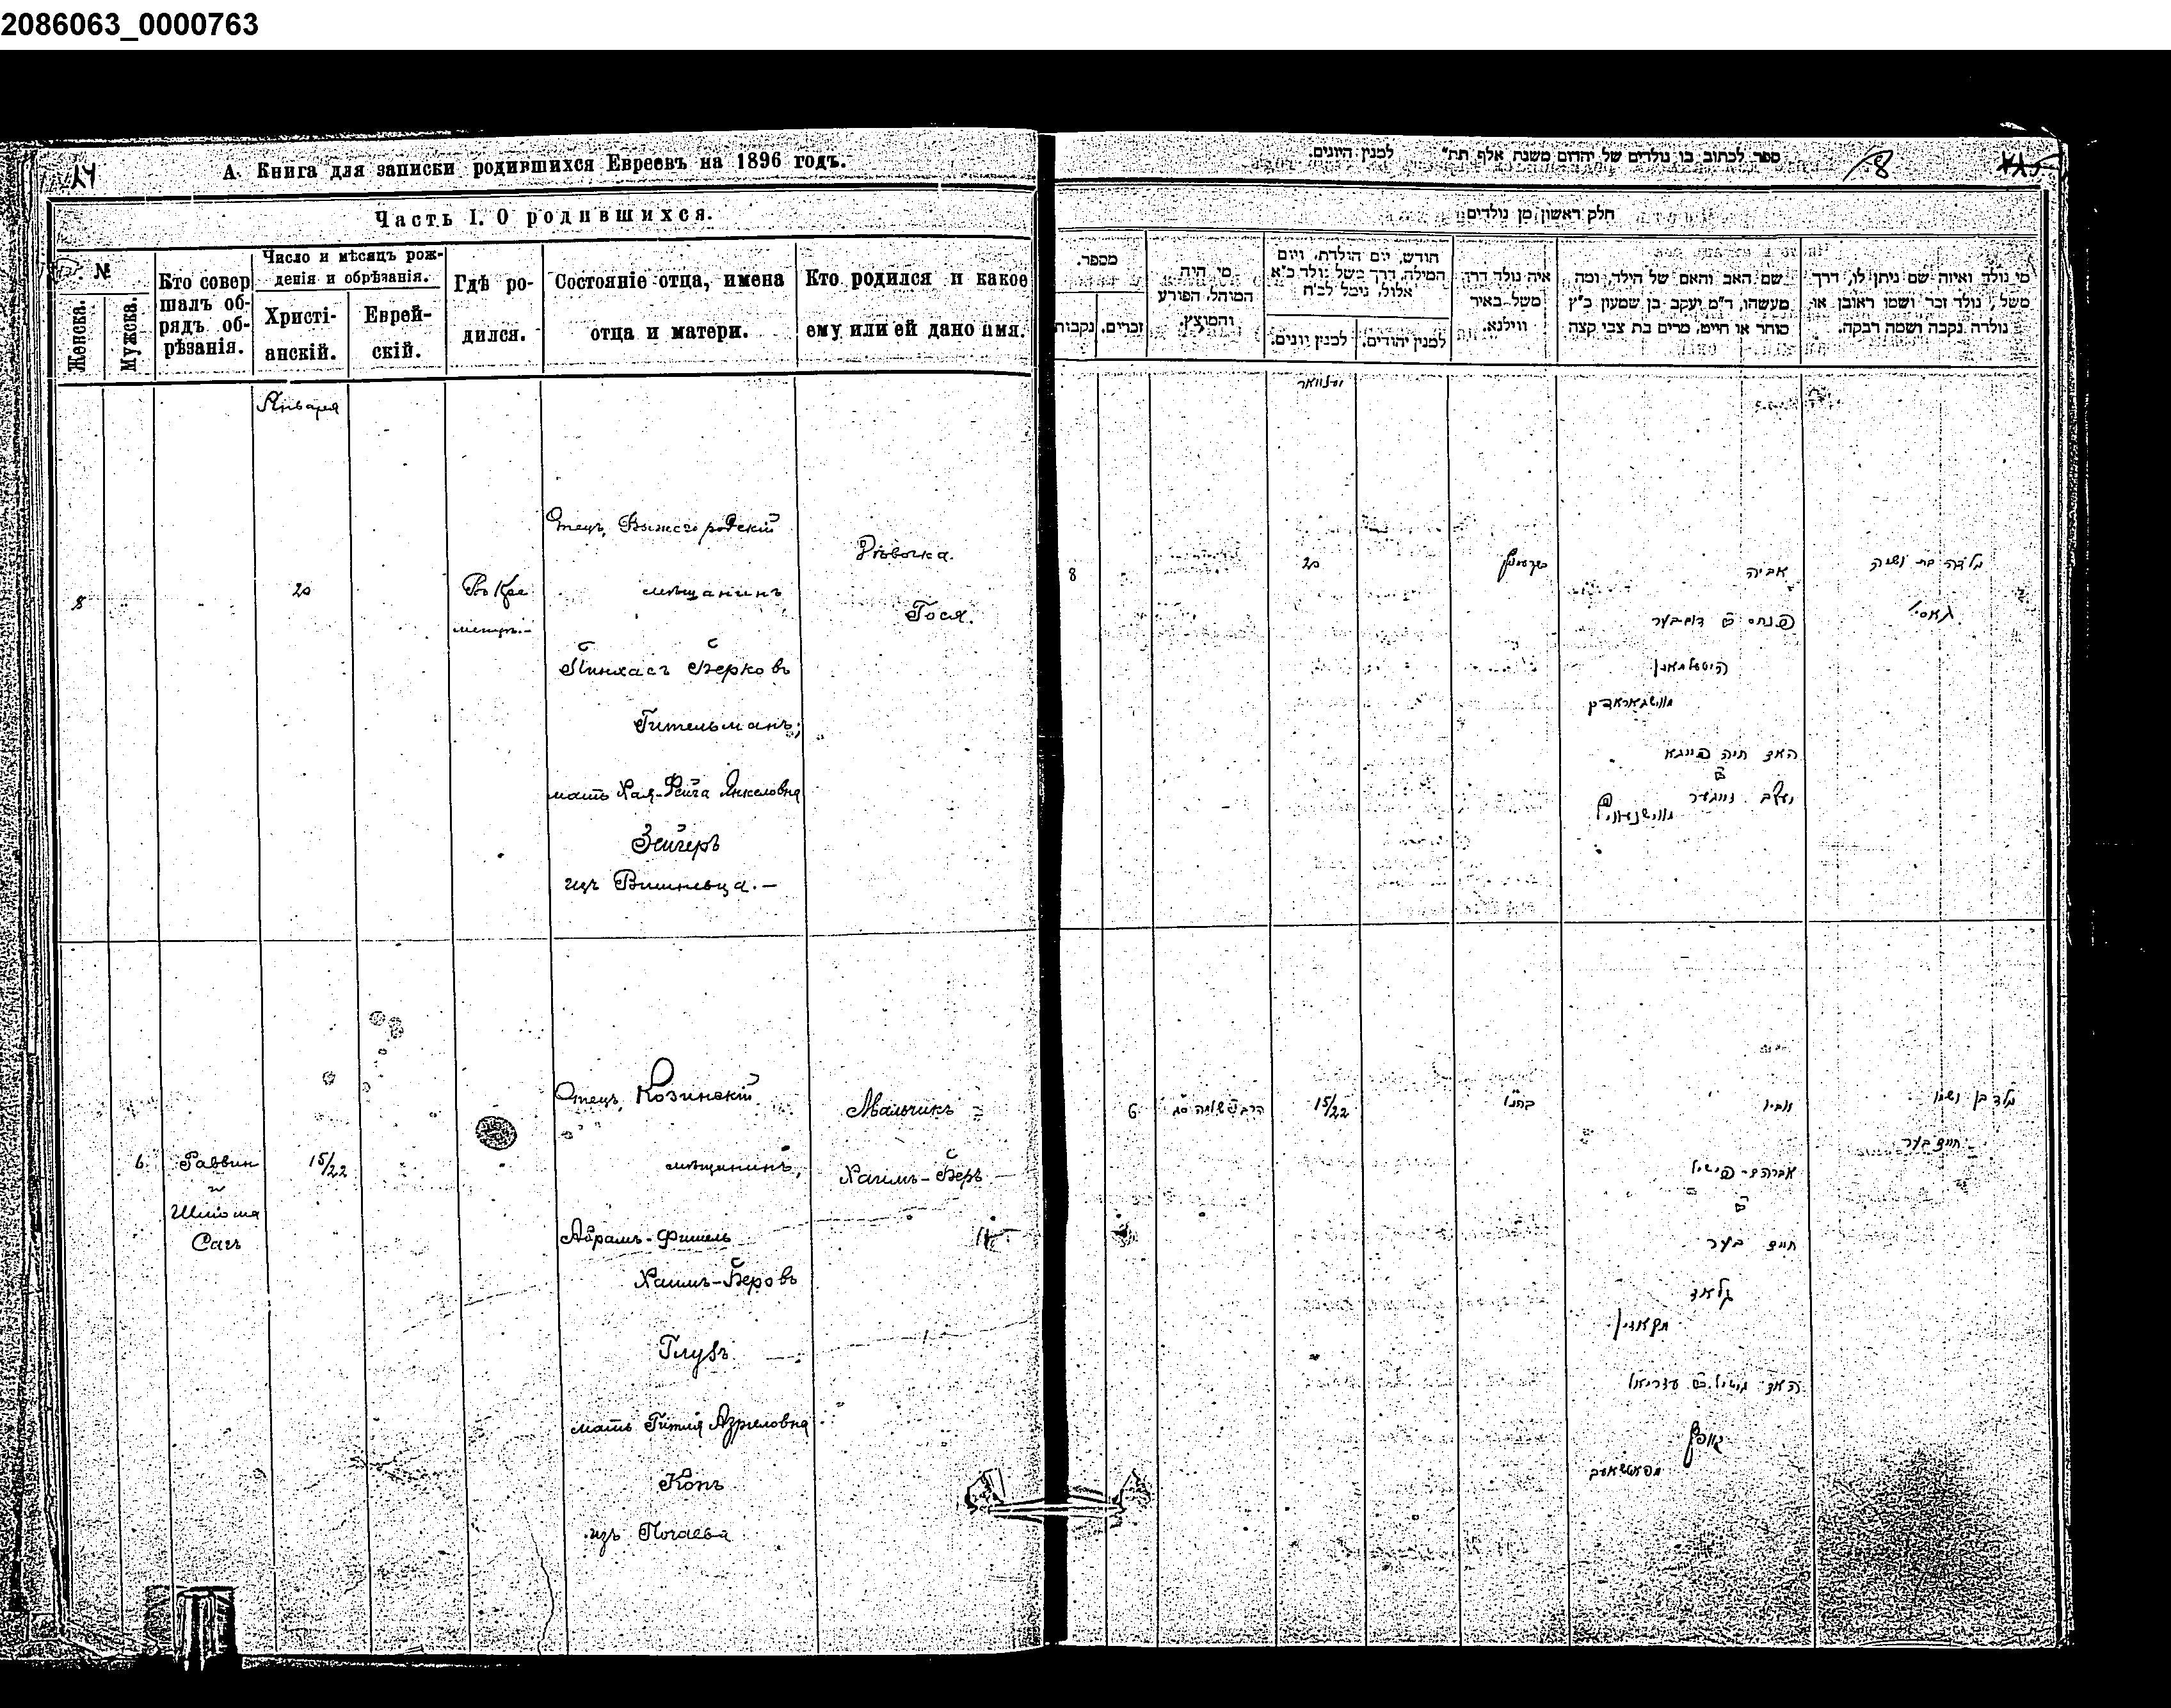 2086063_0000763
24
А. Книга для записки родившихся Евреевъ на 1896 годъ.
Часть I. О родившихся.
№
Женска.
Мужска.
Кто совер
шалъ об-
рядъ об-
рѣзанія.
Число и мѣсяцъ рож-
денія и обрѣзанія.
Христі-
анскій.
Еврей-
скій.
Гдѣ ро-
дился.
Состояніе отца, имена
отца и матери.
Кто родился и какое
ему или ей дано имя.
Января
8
20
Въ Кре
менцѣ.-
Отецъ, Вышгородскій
мѣщанинъ
Пинхасъ Берковъ
Гительманъ;
мать Хая-Фейга Янкеловна
Зейгеръ
изъ Вишневца.-
Дѣвочка.
Гося.
6
Раввин
и
Шлёма
Сагъ
15/22
Отецъ, Козинскій
мѣщанинъ,
Абрамъ-Фишель
Хаимъ-Беровъ
Глузъ
мать Гитля Азриловна
Копъ
изъ Почаева
Мальчикъ
Хаимъ-Беръ
ספר לכתוב בו נולדים של יהדום משנת אלף תת" למנין היונים.
18
חלק ראשון מן נולדים
מספר.
נקבות
זכרים.
מי היה
המוהל, הפורע
והמוצץ.
חודש, יום הולדת, ויום
המילה, דרך משל נולד כ"א
אלול, נימל לכ"ח
למנין יונים.
למנין יהודים.
איה נולד דרך
משל באיר
ווילנא.
שם האב והאם של הילד, ומה
מעשהו, ד"מ יעקב בן שמעון כ"ץ
סוחר או חייט, מרים בת צבי קצה
מי נולד ואיזה שם ניתן לו, דרך
משל, נולד זכר ושמו ראובן או
נולדה נקבה ושמה רבקה.
יאנוואר
8
20
אביה
פנחס ב"ר דוב בער
היטעלמאן
האם חיה פייגא
ילדה בת ושמה
גאסי
6
15/22
אביו
אברהם-פישיל
ב"ר
חיים בער
גלאז
האם גיטיל ב"ר עזריאל
קאפ
ילד בן ושמו
חיים בער